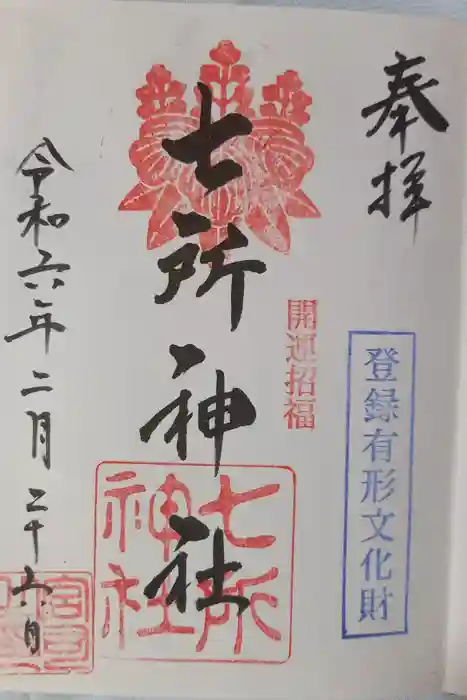 奉拝
登録有形文化財
開運招福
七所神社
七所
神社
令和六年二月二十六日